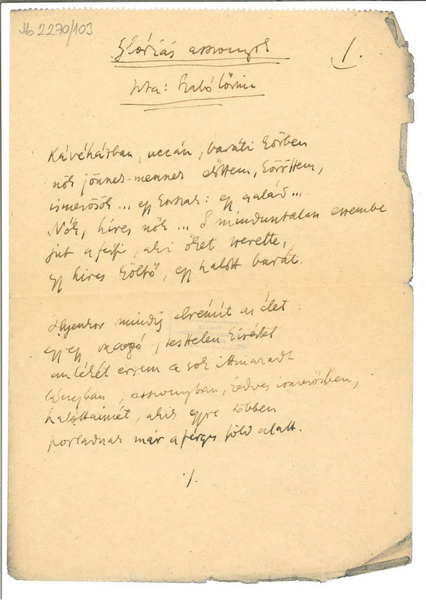 Ms 2270/103
1.
Glóriás asszonyok
Irta: Szabó Lőrinc
Kávéházban, uccán, baráti körben
nők jönnek-mennek előttem, köröttem,
ismerősök... egy korszak: egy család...
Nők, híres nők... S minduntalan eszembe
jut a férfi, aki őket szerette,
egy híres költő, egy halott barát.
Ilyenkor mindig elrémít az élet:
egy-egy ragyogó, testtelen kisértet
emlékét érzem a sok ittmaradt
lányban, asszonyban, kedves ismerősben,
halottaimét, akik egyre többen
porladnak már a férges föld alatt.
./.